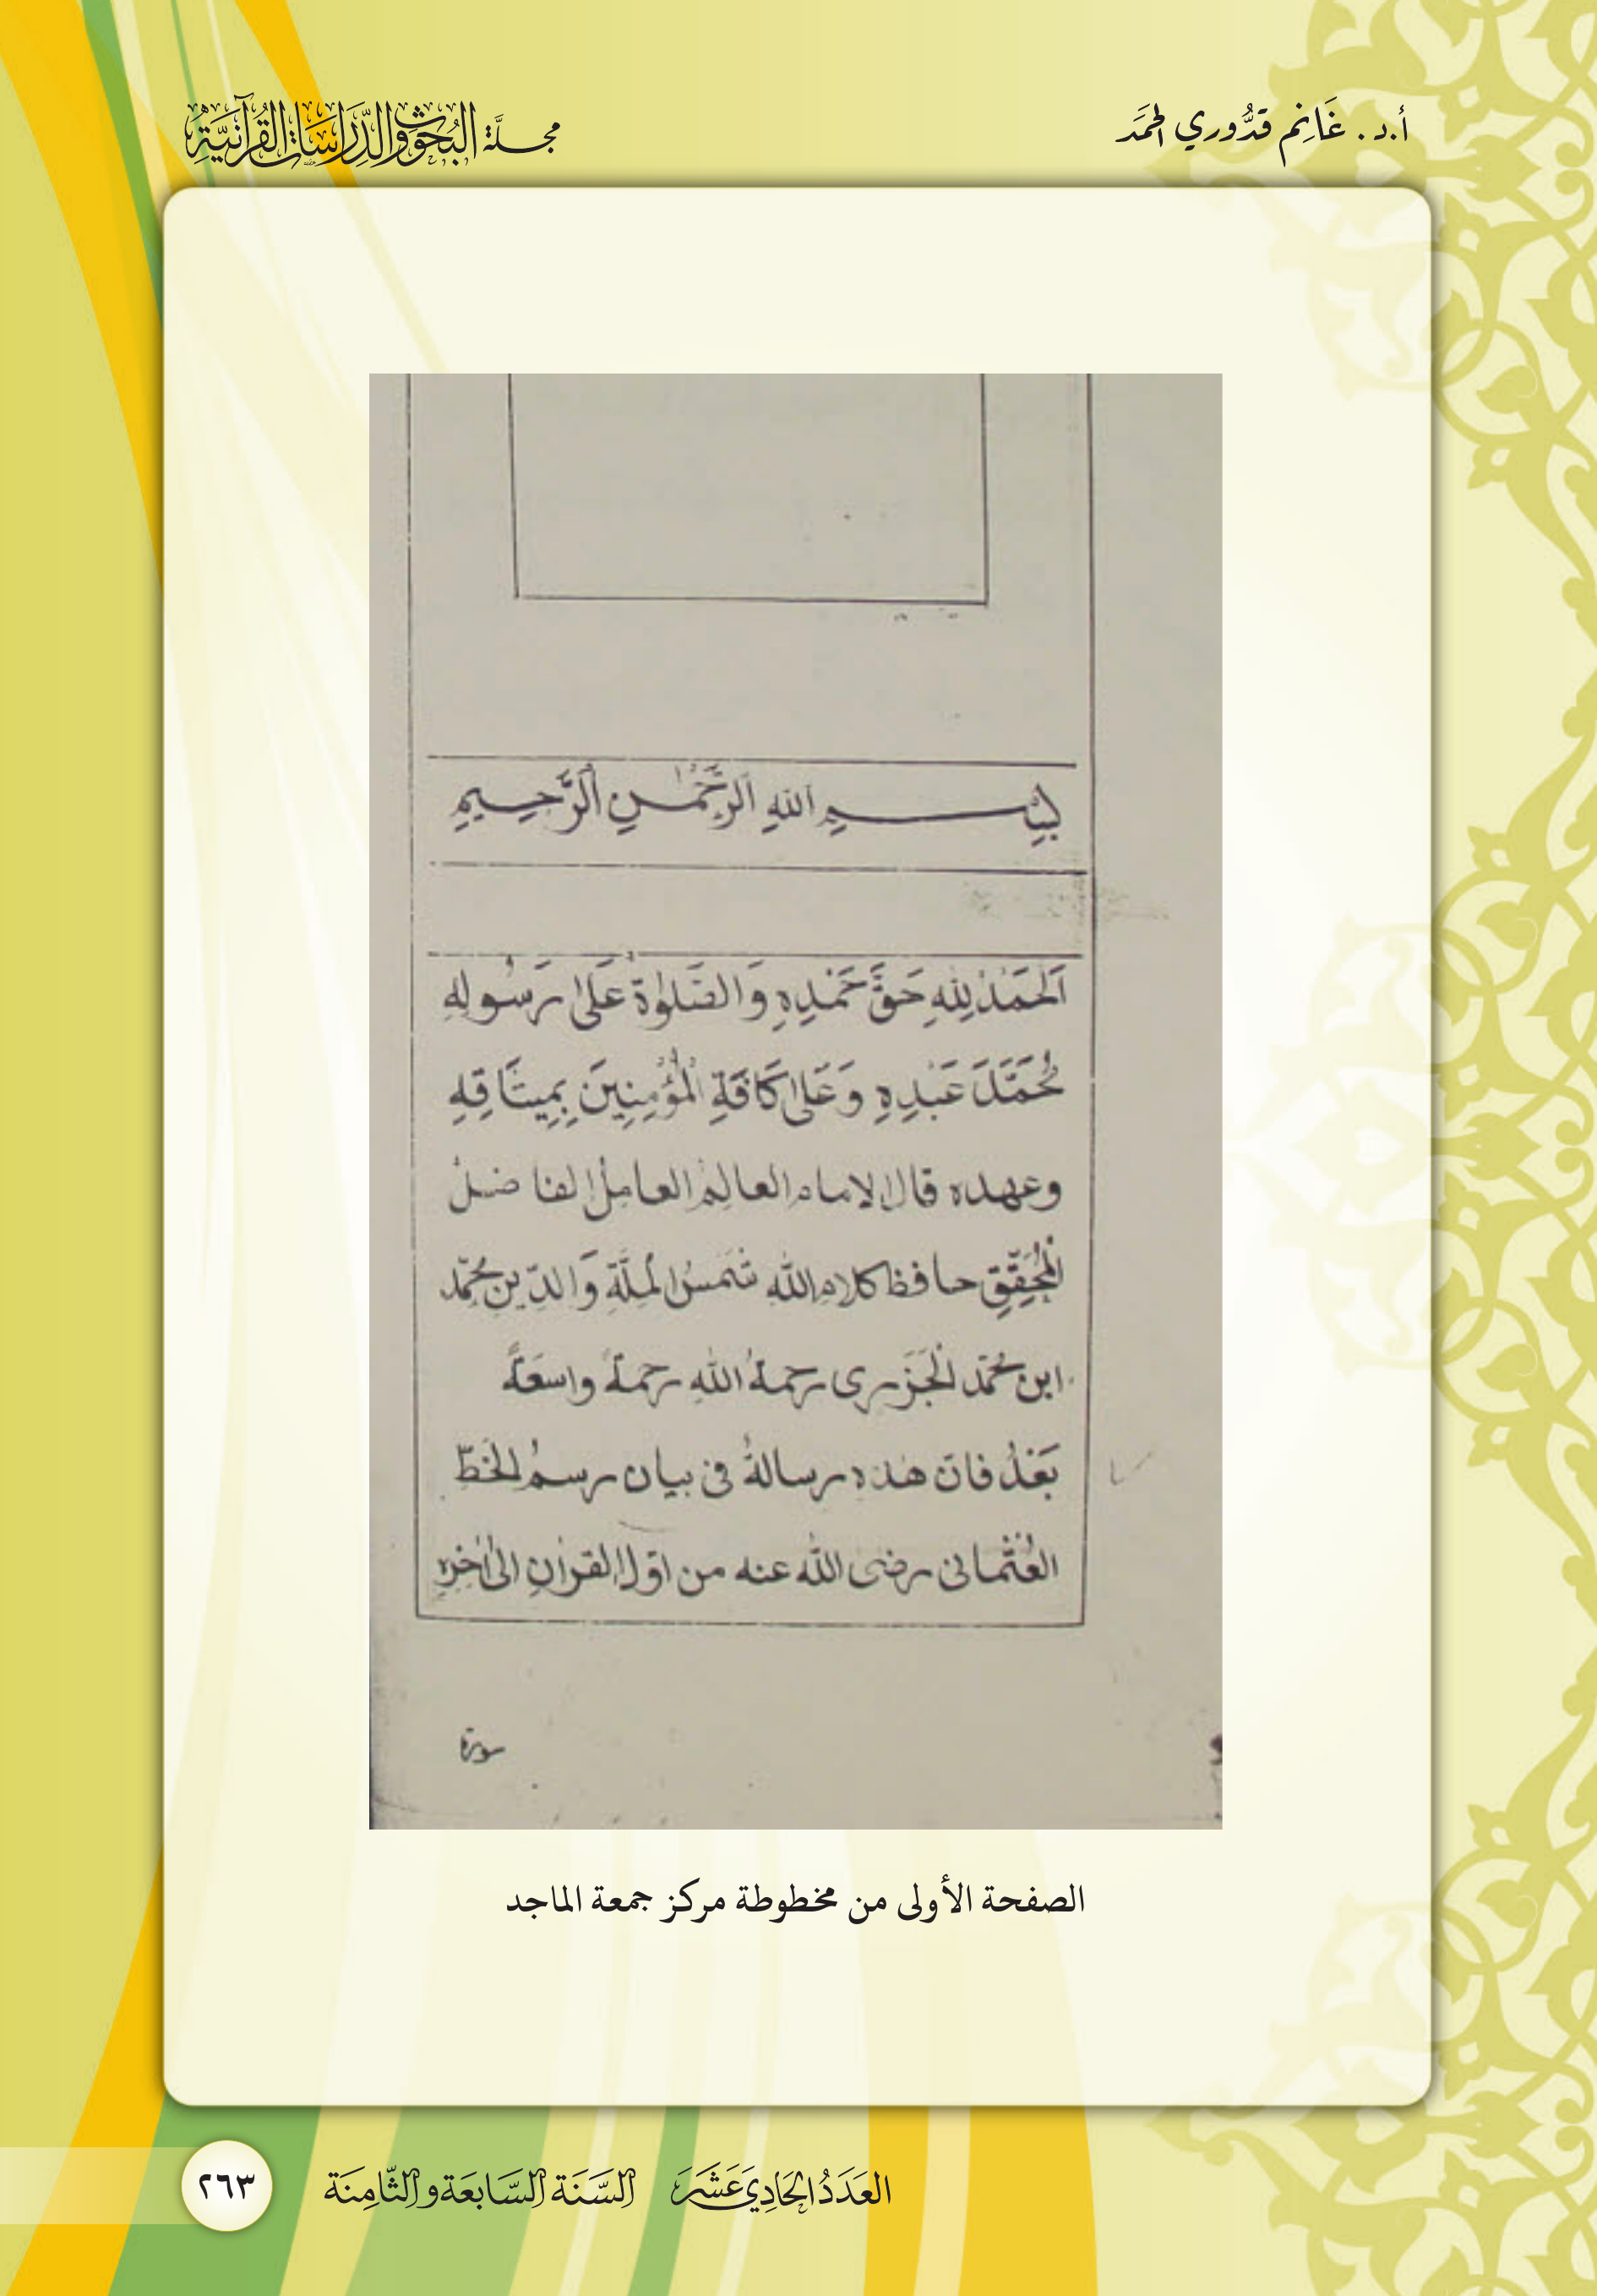 أ.د. غَانِم قدُّوري الحمَد
مجلَّة البُحُوث والدِّرَاسَات القُرآنيَّة
بِسْمِ اللهِ الرَّحْمٰنِ الرَّحِيمِ
اَلحَمْدُ لِلّٰهِ حَقَّ حَمْدِهِ وَالصَّلٰوةُ عَلٰى رَسُولِهِ
مُحَمَّدَ عَبْدِهِ وَعَلٰى كَافَّةِ الْمُؤْمِنِينَ بِمِيثَاقِهِ
وعهده قال الامام العالِمُ العامِلُ الفاضلُ
الْمُحَقِّقِ حافظ كلام الله شَمْسُ الْمِلَّةِ وَالدّين محمّد
ابن محمّد الْجَزَرى رحمهُ اللهِ رحمةً واسعَةً
بَعْدُ فان هذه رسالةُ فى بيان رسمُ الخَطّ
العُثمانى رضى الله عنه من اوّل القرآنِ الى آخره
سورة
الصفحة الأولى من مخطوطة مركز جمعة الماجد
العَدَدُ الحَادِي عَشَرَ السَّنَة السَّابعَة والثَّامِنَة
٢٦٣